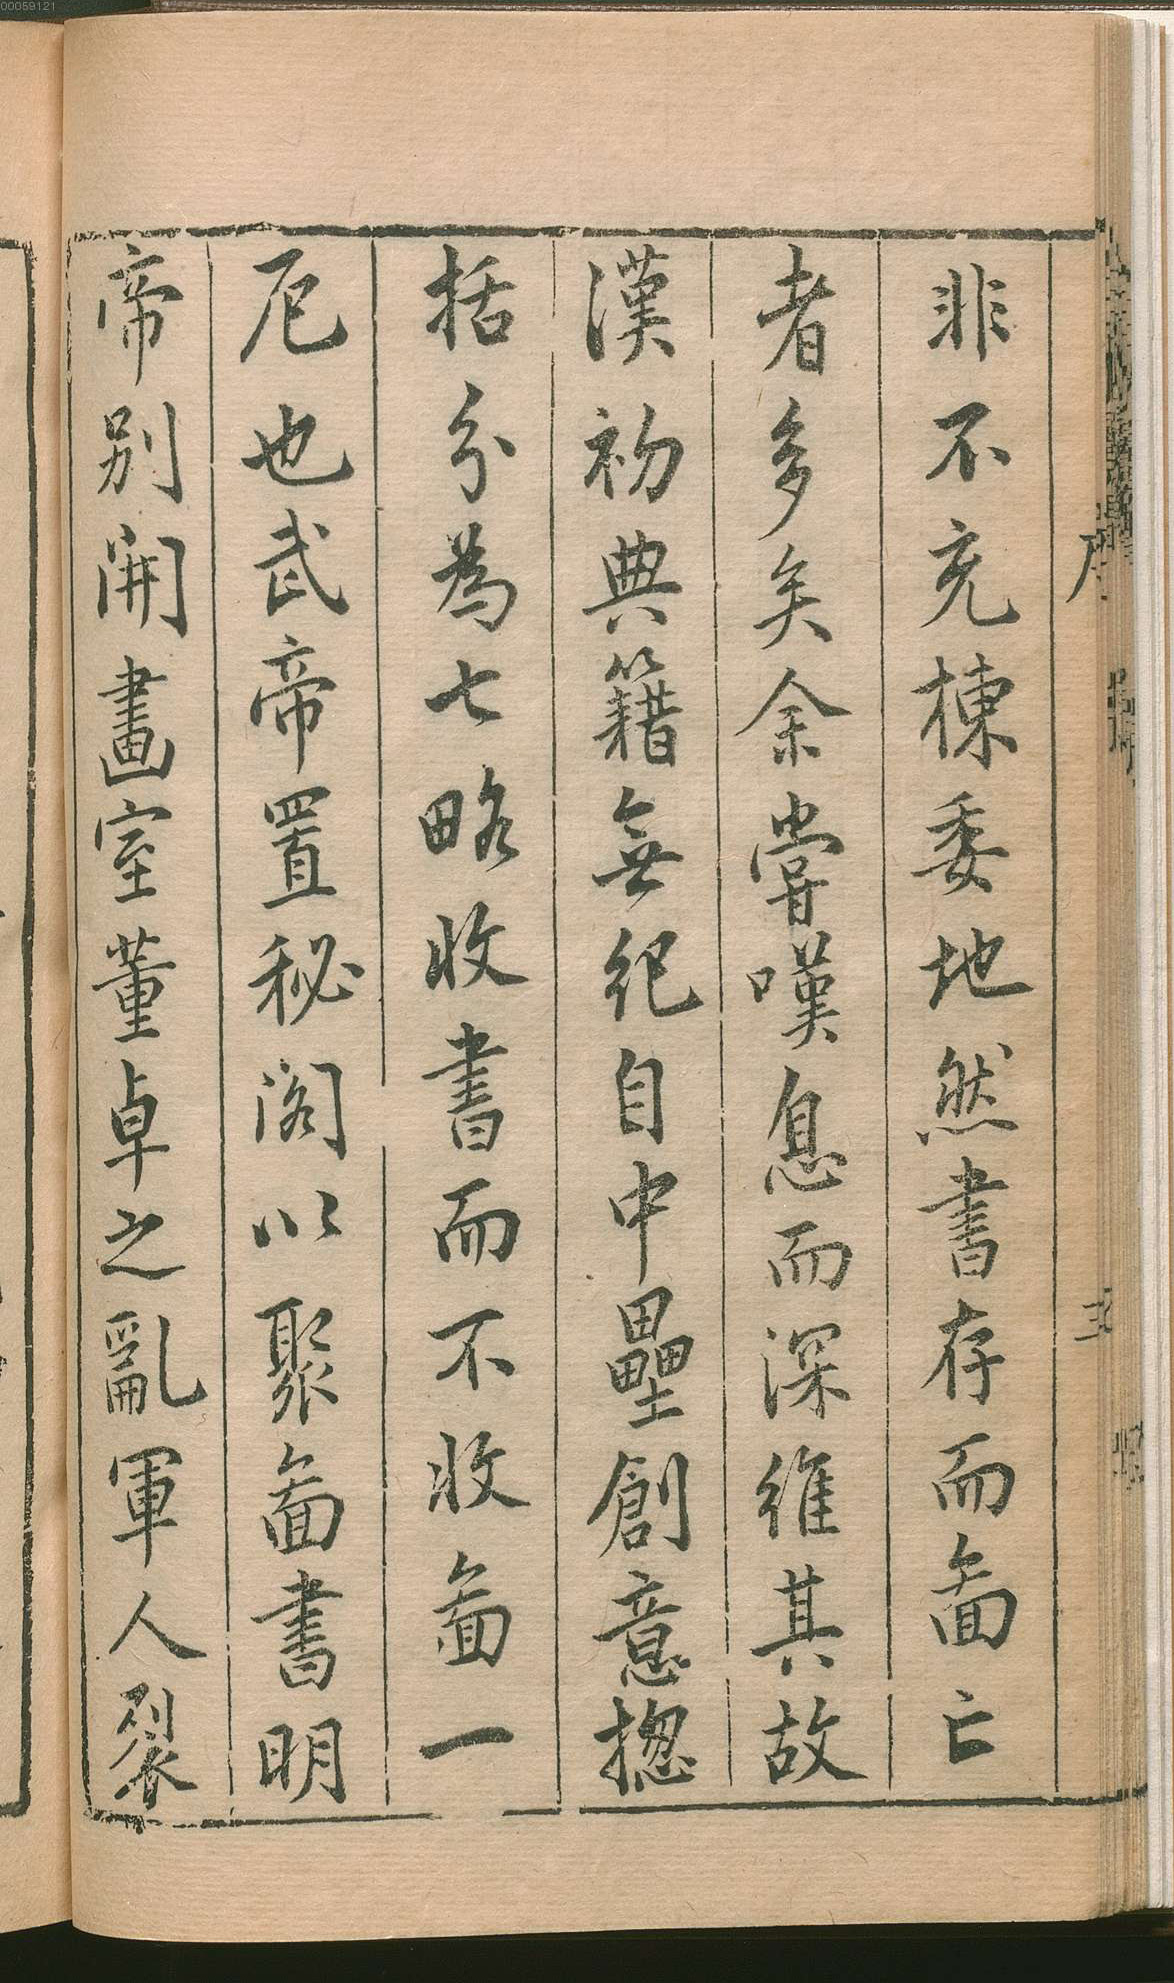 00059121
非不充棟委地然書存而啚亡
者多矣余嘗嘆息而深維其故
漢初典籍無紀自中壘創意揔
括分為七略收書而不收啚一
厄也武帝置秘閣以聚啚書明
帝別開畫室董卓之亂軍人裂